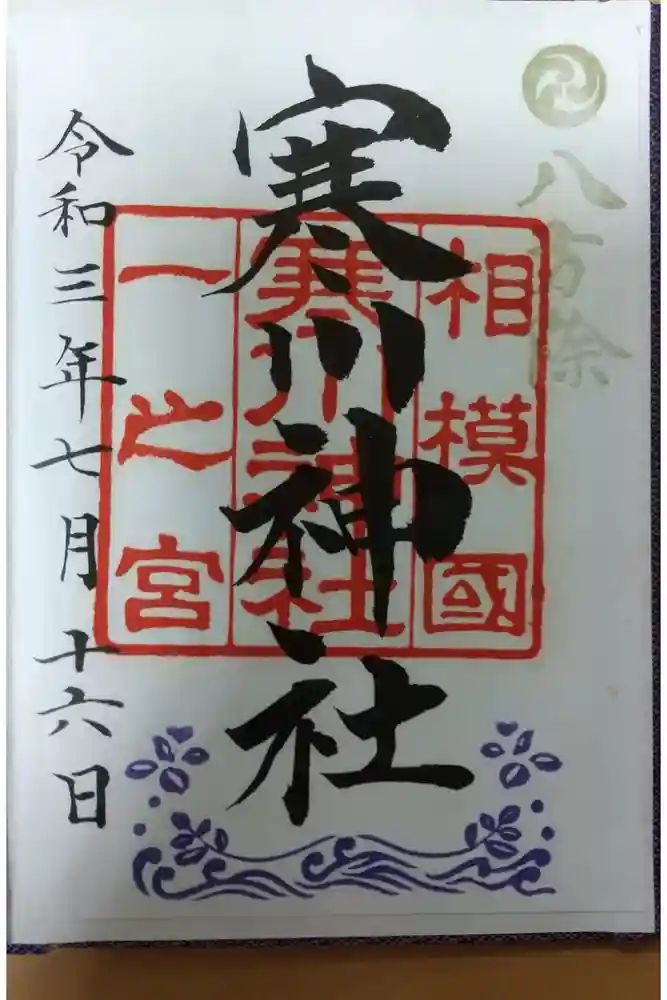 八方除
相模國
寒川神社
一之宮
寒川神社
令和三年七月十六日